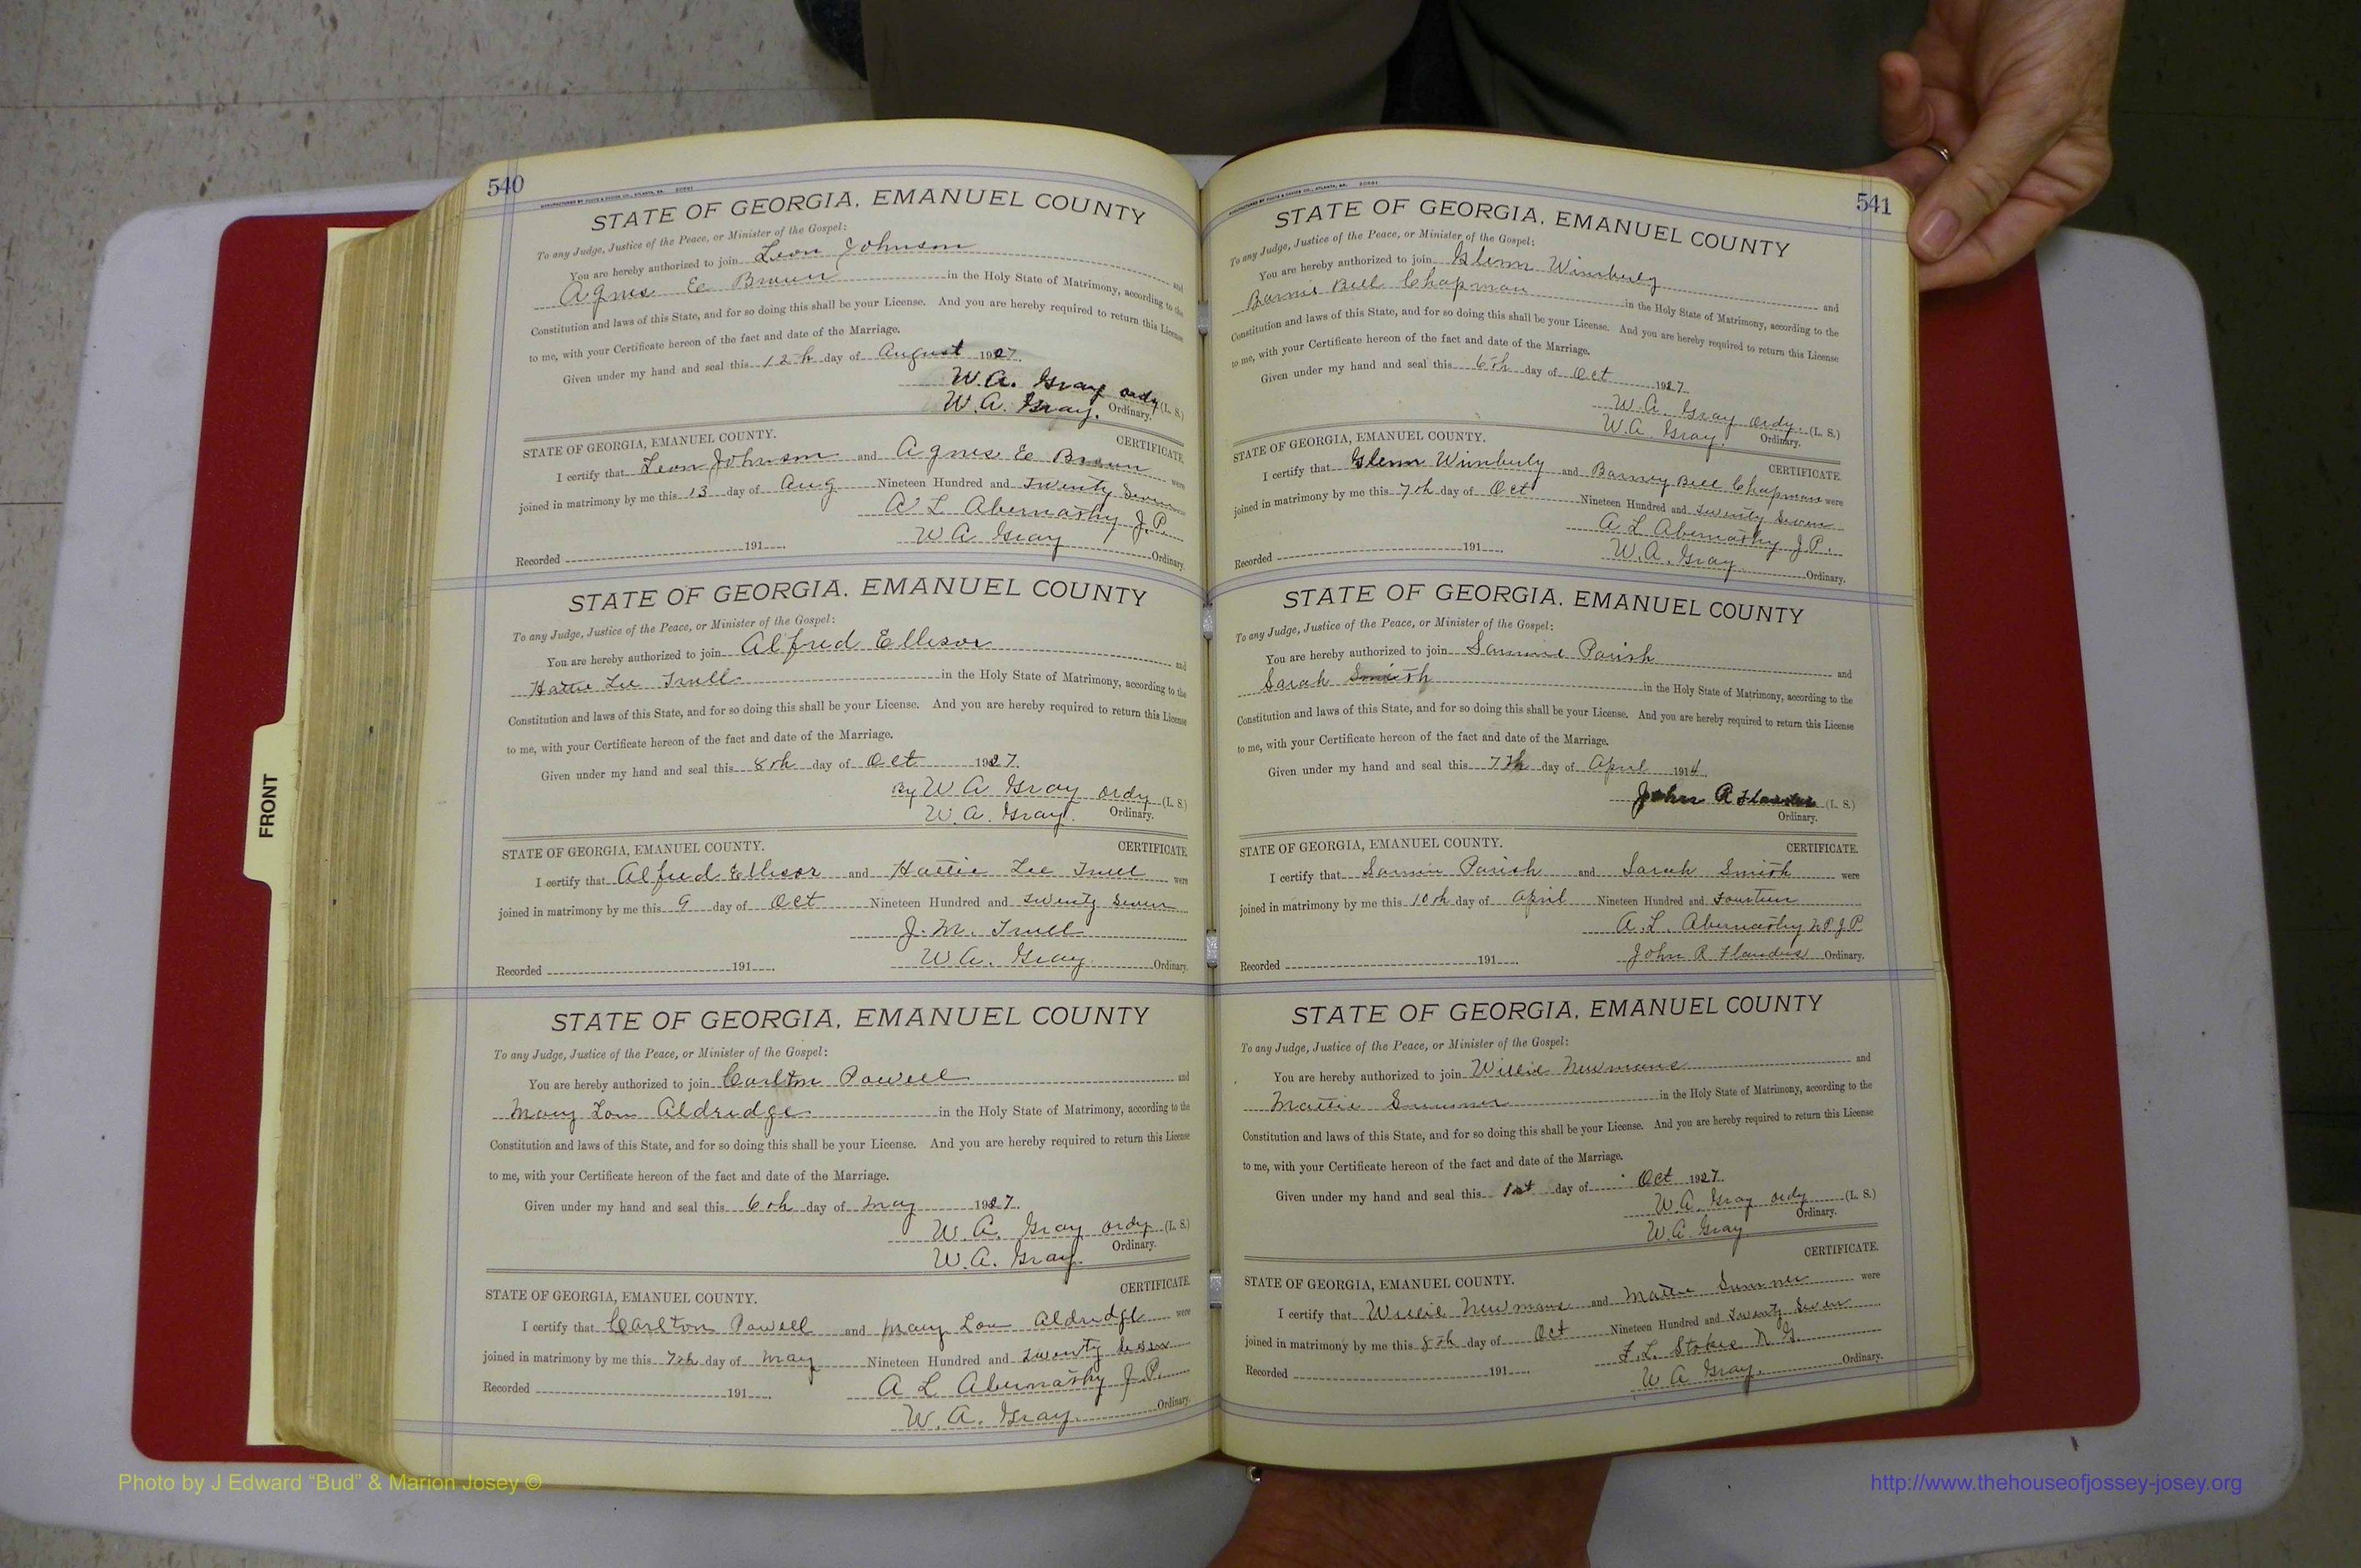 540
STATE OF GEORGIA, EMANUEL COUNTY
To any Judge, Justice of the Peace, or Minister of the Gospel:
You are hereby authorized to join Leon Johnson and
Agnes E Brown in the Holy State of Matrimony, according to the
Constitution and laws of this State, and for so doing this shall be your License. And you are hereby required to return this License
to me, with your Certificate hereon of the fact and date of the Marriage.
Given under my hand and seal this 12th day of August 1927.
W. A. Gray ordy (L. S.)
W. A. Gray. Ordinary.
STATE OF GEORGIA, EMANUEL COUNTY. CERTIFICATE.
I certify that Leon Johnson and Agnes E Brown were
joined in matrimony by me this 13 day of Aug Nineteen Hundred and Twenty Seven
A L Abernathy J.P.
Recorded 191 W A Gray Ordinary.
STATE OF GEORGIA. EMANUEL COUNTY
To any Judge, Justice of the Peace, or Minister of the Gospel:
You are hereby authorized to join Alfred Ellisor and
Hattie Lee Truell in the Holy State of Matrimony, according to the
Constitution and laws of this State, and for so doing this shall be your License. And you are hereby required to return this License
to me, with your Certificate hereon of the fact and date of the Marriage.
Given under my hand and seal this 8th day of Oct 1927.
By W A Gray ordy (L. S.)
W. A. Gray. Ordinary.
STATE OF GEORGIA, EMANUEL COUNTY. CERTIFICATE.
I certify that Alfred Ellisor and Hattie Lee Truell were
joined in matrimony by me this 9 day of Oct Nineteen Hundred and twenty Seven
J. M. Truell
Recorded 191 W A. Gray. Ordinary.
STATE OF GEORGIA, EMANUEL COUNTY
To any Judge, Justice of the Peace, or Minister of the Gospel:
You are hereby authorized to join Carlton Powell and
Mary Lou Aldredge in the Holy State of Matrimony, according to the
Constitution and laws of this State, and for so doing this shall be your License. And you are hereby required to return this License
to me, with your Certificate hereon of the fact and date of the Marriage.
Given under my hand and seal this 6th day of May 1927.
W. A. Gray ordy (L. S.)
W. A. Gray. Ordinary.
STATE OF GEORGIA, EMANUEL COUNTY. CERTIFICATE.
I certify that Carlton Powell and Mary Lou Aldredge were
joined in matrimony by me this 7th day of May Nineteen Hundred and twenty Seven
A L Abernathy J.P.
Recorded 191
W. A. Gray. Ordinary.
541
STATE OF GEORGIA, EMANUEL COUNTY
To any Judge, Justice of the Peace, or Minister of the Gospel:
You are hereby authorized to join Glenn Wimberly and
Barnie Bell Chapman in the Holy State of Matrimony, according to the
Constitution and laws of this State, and for so doing this shall be your License. And you are hereby required to return this License
to me, with your Certificate hereon of the fact and date of the Marriage.
Given under my hand and seal this 6th day of Oct 1927
W. A. Gray ordy. (L. S.)
W. A. Gray. Ordinary.
STATE OF GEORGIA, EMANUEL COUNTY. CERTIFICATE.
I certify that Glenn Wimberly and Barney Bell Chapman were
joined in matrimony by me this 7th day of Oct Nineteen Hundred and twenty Seven
A L Abernathy J.P.
Recorded 191 W. A. Gray. Ordinary.
STATE OF GEORGIA. EMANUEL COUNTY
To any Judge, Justice of the Peace, or Minister of the Gospel:
You are hereby authorized to join Sammie Parish and
Sarah Smith in the Holy State of Matrimony, according to the
Constitution and laws of this State, and for so doing this shall be your License. And you are hereby required to return this License
to me, with your Certificate hereon of the fact and date of the Marriage.
Given under my hand and seal this 7th day of April 1914
John R Flanders (L. S.)
Ordinary.
STATE OF GEORGIA, EMANUEL COUNTY. CERTIFICATE.
I certify that Sammie Parish and Sarah Smith were
joined in matrimony by me this 10th day of April Nineteen Hundred and Fourteen
A. L. Abernathy N P J P
Recorded 191 John R Flanders Ordinary.
STATE OF GEORGIA, EMANUEL COUNTY
To any Judge, Justice of the Peace, or Minister of the Gospel:
You are hereby authorized to join Willie Newmans and
Mattie Summer in the Holy State of Matrimony, according to the
Constitution and laws of this State, and for so doing this shall be your License. And you are hereby required to return this License
to me, with your Certificate hereon of the fact and date of the Marriage.
Given under my hand and seal this 1st day of Oct 1927.
W. A. Gray ordy (L. S.)
W A Gray Ordinary.
CERTIFICATE.
STATE OF GEORGIA, EMANUEL COUNTY.
I certify that Willie Newmans and Mattie Summer were
joined in matrimony by me this 8th day of Oct Nineteen Hundred and Twenty Seven
F. L. Stokes N G.
Recorded 191 W A Gray. Ordinary.
FRONT
Photo by J Edward “Bud” & Marion Josey ©
http://www.thehouseofjossey-josey.org